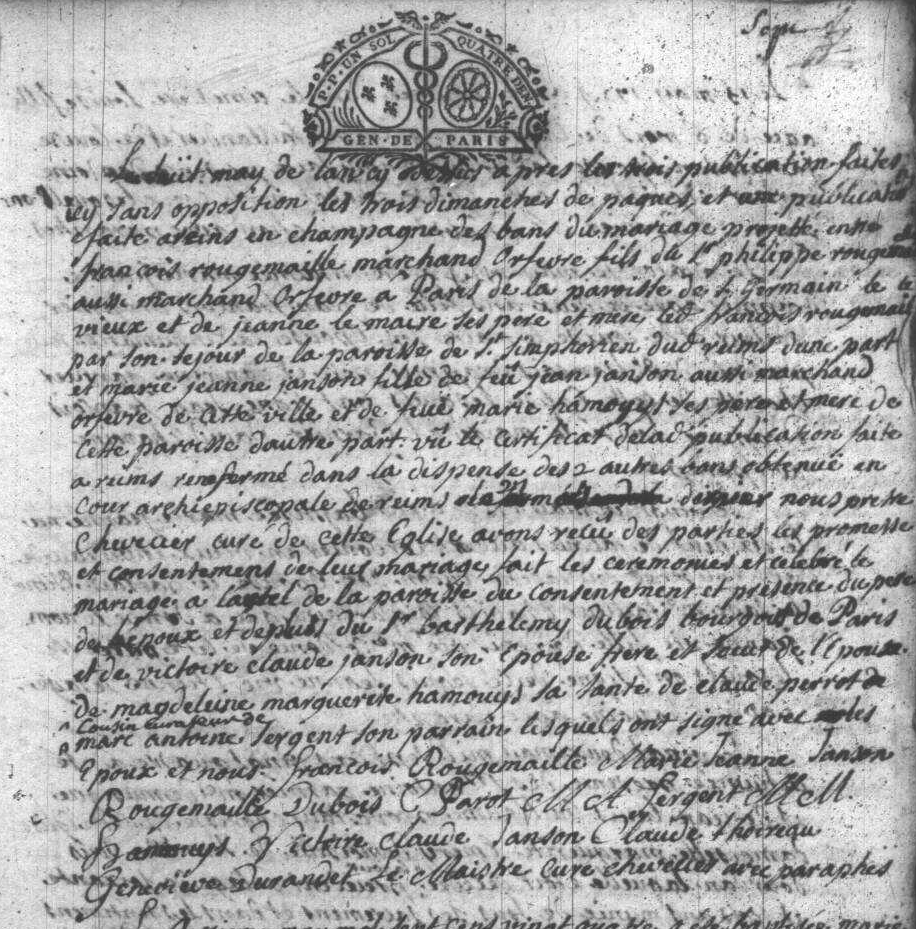 Sign
G.P. UN SOL QUATRE DEN
GEN. DE PARIS
Le huit may de lan cy dessus apres les trois publication faites
icy sans opposition les trois dimanches de paques, et une publication
faite areins en champagne des bans du mariage projetté entre
francois rougemaille marchand Orfevre fils du Sr philippe rougemaille
aussi marchand Orfevre a Paris de la paroisse de St Germain le
vieux et de jeanne le maire ses pere et mere, led françois rougemaille
par son sejour de la paroisse de St simphorien dud reims dune part
et marie jeanne janson fille de feu jean janson aussi marchand
orfevre de cette ville et de feue marie hamouys ses pere et mere de
Cette paroisse dautre part. vû le certificat delad publication faite
a reims renfermé dans la dispense des 2 autres bans obtenuë en
Cour archiepiscopale de reims dernier nous pretre
Chevecier curé de cette Eglise avons reçu des parties les promesse
et consentemens de leur mariage fait les ceremonies et celebré le
mariage a lautel de la paroisse du consentement et presence du pere
de lepoux et depuis du Sr barthelemy dubois bourgeois de Paris
et de victoire claude janson son Epouse frere et soeur de l'Epouse.
de magdeleine marguerite hamouys sa tante de claude perrot de
Cousin curateur de
marc antoine sergent son parrain lesquels ont signé avec les
Epoux et nous. francois Rougemaille Marie Jeanne Janson
Rougemaille Dubois C Parot M A Sergent M M
hamouys Victoire Claude Janson Claude thoireau
Genevieve Durandet Le Maistre curé chevecier avec paraphes